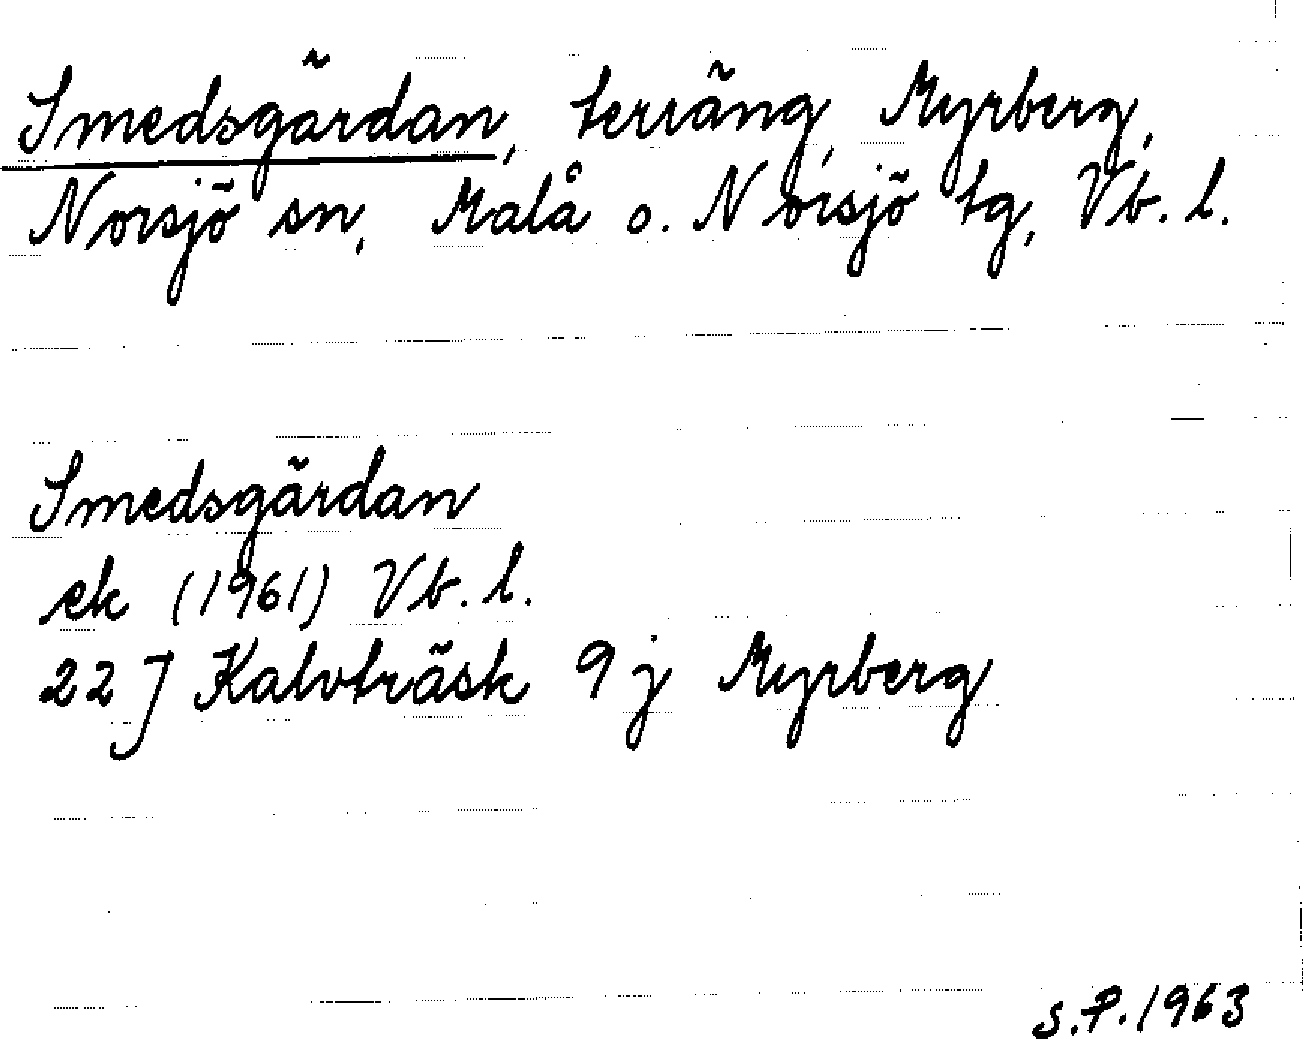 Smedsgärdan, terräng, Myrberg,
Norsjö sn, Malå o. Norsjö tg, Vb. l.
Smedsgärdan
ek (1961) Vb. l.
22 J Kalvträsk 9 j Myrberg
S.P. 1963